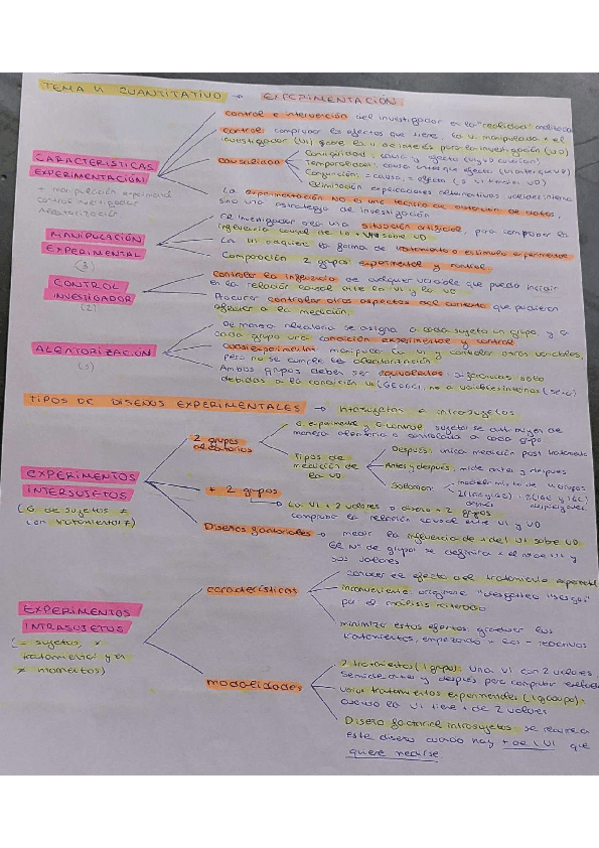 TEMA 4 CUANTITATIVO → EXPERIMENTACIÓN
control e intervención del investigador en la "realidad"
control: comprobar los efectos que tiene la v. manipulada x el
investigador (VI) sobre la v. de interés para la investigación (VD)
CARACTERÍSTICAS
EXPERIMENTACIÓN
+ manipulación experimental
control investigador
aleatorización
causalidad
Contigüidad: causa y efecto
Temporalidad: causa antes que efecto
Conjunción = causa, = efecto
Eliminación explicaciones alternativas
La experimentación NO es una técnica de obtención de datos,
sino una estrategia de investigación
MANIPULACIÓN
EXPERIMENTAL
(3)
El investigador crea una situación artificial, para comprobar la
influencia causal de la VI sobre VD
La VI adquiere la forma de tratamiento o estímulo experimental
Comparación 2 grupos experimental y control
CONTROL
INVESTIGADOR
(2)
Controlar la influencia de cualquier variable que pueda incidir
en la relación causal entre la VI y la VD
Procurar controlar otros aspectos del contexto que pudieran
afectar a la medición
ALEATORIZACIÓN
(3)
De manera aleatoria se asigna a cada sujeto un grupo, y a
cada grupo una condición experimental y control
cuasiexperimentos manipula la VI y controlar otras variables,
pero no se cumple la aleatorización
Ambos grupos deben ser equivalentes
debidas a la condición
TIPOS DE DISEÑOS EXPERIMENTALES → Intersujetos e intrasujetos
EXPERIMENTOS
INTERSUJETOS
(G. de sujetos ≠
con tratamiento ≠)
2 grupos
aleatorios
G. experimental y G. control: sujetos se distribuyen de
manera aleatoria o controlada a cada grupo
Tipos de
medición de
la VD
Después: única medición post tratamiento
Antes y después: mide antes y después
Solomon: 4 grupos
+ 2 grupos
La VI + 2 valores o diseño + 2 grupos
comprobar la relación causal entre VI y VD
Diseños factoriales → medir la influencia de + del VI sobre VD.
El Nº de grupos se definirá x el nº de VI y
sus valores
EXPERIMENTOS
INTRASUJETOS
(= sujetos, ≠
tratamiento y en
≠ momentos)
características
conocer el efecto del tratamiento experimental
inconveniente: originarse
minimizar estos efectos: graduar los
tratamientos, empezando x los - reactivos
modalidades
2 tratamientos (1 grupo): Una VI con 2 valores
Se mide antes y después
varios tratamientos experimentales (1 grupo):
cuando la VI tiene + de 2 valores
Diseño factorial intrasujetos: se realiza
este diseño cuando hay + de 1 VI que
quiere medirse